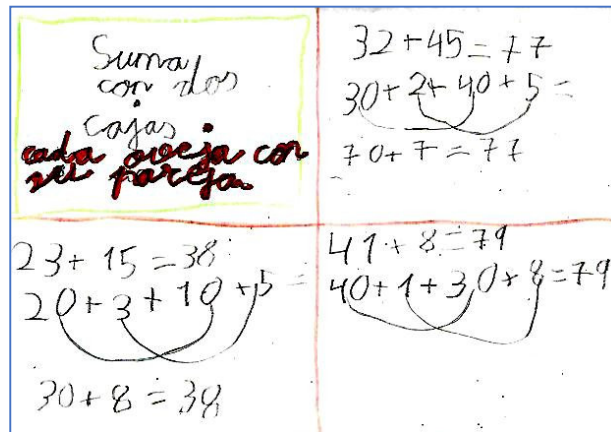 Suma
con dos
cajas
cada oveja con
su pareja.
32+45=77
30+2+40+5=
70+7=77
23+15=38
20+3+10+5=
30+8=38
41+8=79
40+1+30+8=79